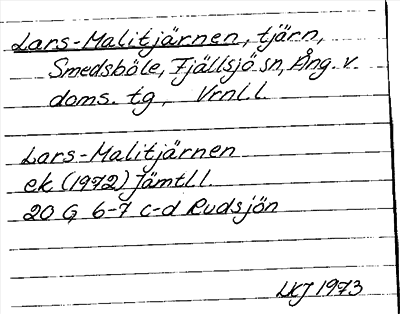 Lars-Malitjärnen, tjärn,
Smedsböle, Fjällsjö sn, Ång. v.
doms. tg, Vrnl.l
Lars-Malitjärnen
ek (1972) Jämtl l.
20 G 6-7 c-d Rudsjön
LKJ 1973